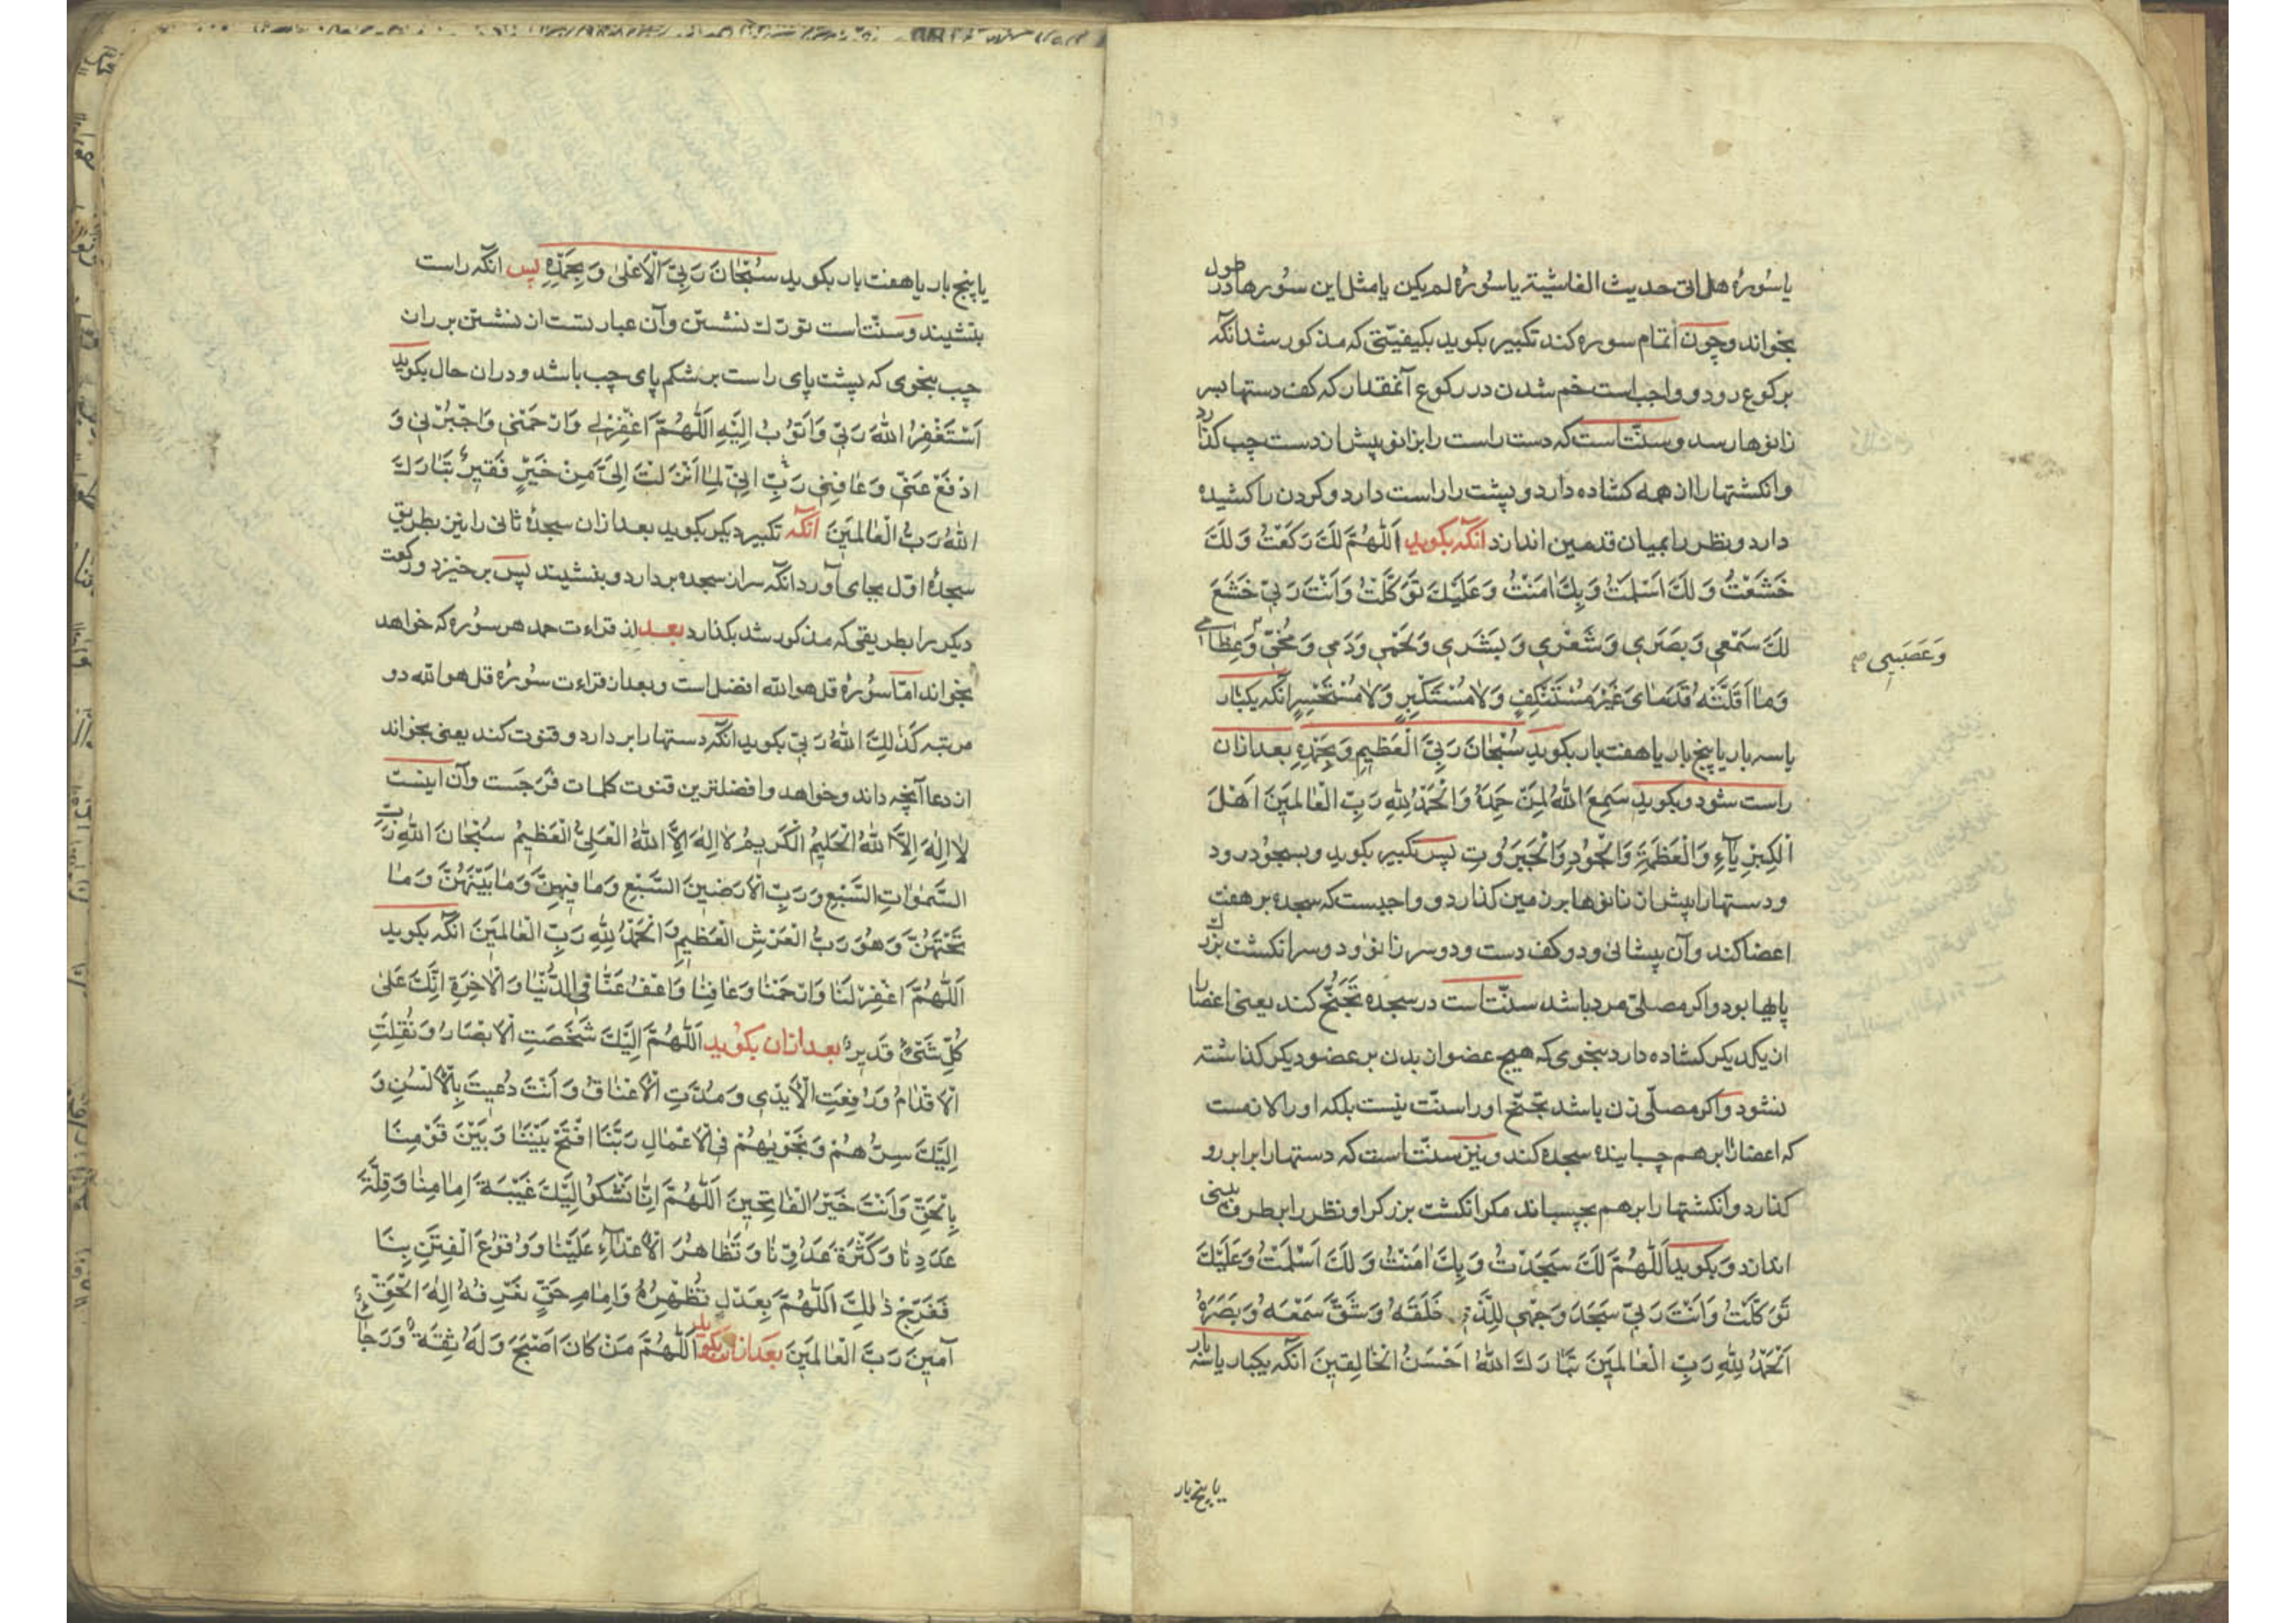 یا سُورۀ هل اتی حدیث الغاشیة یا سُورۀ لم یکن یا مثل این سُورها در طول
بخواند و چون اتمام سوره کند تکبیر بکوید بکیفیّتی که مذکور شد انکه
برکوع رود و واجب است خم شدن در رکوع آنمقدار که کف دستها بسر
زانوها رسد و سنّت است که دست راست را بزانو پیش از دست چپ کذارد
وانکشتها را از همه کشاده دارد و پشت را راست دارد و کردن را کشیده
دارد و نظر را بمیان قدمین اندازد انکه بکوید اَللّٰهُمَّ لَكَ رَكَعْتُ وَلَكَ
خَشَعْتُ وَلَكَ اَسْلَمْتُ وَبِكَ اٰمَنْتُ وَعَلَيْكَ تَوَكَّلْتُ وَاَنْتَ رَبّي خَشَعَ
لَكَ سَمْعي وَبَصَري وَشَعْري وَبَشَري وَلَحْمي وَدَمي وَمُخّي وَعِظٰامي
وَعَصَبي صح
وَمٰا اَقَلَّتْهُ قَدَمٰاىَ غَيْرَ مُسْتَنْكِفٍ وَلٰا مُسْتَكْبِرٍ وَلٰا مُسْتَحْسِرٍ انکه یکبار
یا سه بار یا پنج بار یا هفت بار بکوید سُبْحٰانَ رَبِّيَ الْعَظيمِ وَبِحَمْدِهِ بعد ازان
راست شود و بکوید سَمِعَ اللّٰهُ لِمَنْ حَمِدَهُ وَالْحَمْدُ لِلّٰهِ رَبِّ الْعٰالَمينَ اَهْلَ
الْكِبْرِيٰآءِ وَالْعَظَمَةِ وَالْجُودِ وَالْجَبَرُوتِ پس تکبیر بکوید و بسجود رود
و دستها را پیش از زانوها بر زمین کذارد و واجبست که سجده بر هفت
اعضا کند و آن پیشانی و دو کف دست و دو سر زانو و دو سر انکشت بزرك
پایها بود و اکر مصلّی مرد باشد سنّت است در سجده تَجَنُّح کند یعنی اعضا را
از یکدیکر کشاده دارد بنحوی که هیچ عضو از بدن بر عضو دیکر کذاشته
نشود و اکر مصلّی زن باشد تجنّح او را سنّت نیست بلکه او را لازمست
که اعضا را بر هم چسبانیده سجده کند و نیز سنّت است که دستها را برابر رو
کذارد و انکشتها را بر هم بچسباند مکر انکشت بزرک را و نظر را بطرف بینی
اندازد و بکوید اَللّٰهُمَّ لَكَ سَجَدْتُ وَبِكَ اٰمَنْتُ وَلَكَ اَسْلَمْتُ وَعَلَيْكَ
تَوَكَّلْتُ وَاَنْتَ رَبّي سَجَدَ وَجْهي لِلَّذي خَلَقَهُ وَشَقَّ سَمْعَهُ وَبَصَرَهُ
اَلْحَمْدُ لِلّٰهِ رَبِّ الْعٰالَمينَ تَبٰارَكَ اللّٰهُ اَحْسَنُ الْخٰالِقينَ انکه یکبار یا سه بار
یا پنج بار
یا پنج بار یا هفت بار بکوید سُبْحٰانَ رَبِّيَ الْاَعْلىٰ وَبِحَمْدِهِ پس انکه راست
بنشیند و سنّت است تورّك نشستن و آن عبارتست از نشستن بر ران
چپ بنحوی که پشت پای راست بر شکم پای چپ باشد و در ان حال بکوید
اَسْتَغْفِرُ اللّٰهَ رَبّي وَاَتُوبُ اِلَيْهِ اَللّٰهُمَّ اغْفِرْلي وَارْحَمْني وَاجْبُرْني وَ
ادْفَعْ عَنّي وَعٰافِني رَبِّ اِنّي لِمٰا اَنْزَلْتَ اِلَيَّ مِنْ خَيْرٍ فَقيرٌ تَبٰارَكَ
اللّٰهُ رَبُّ الْعٰالَمينَ انکه تکبیر دیکر بکوید بعد ازان سجدۀ ثانی را نیز بطریق
سجدۀ اوّل بجای آورد انکه سر از سجده بردارد و بنشیند پس برخیزد و رکعت
دیکر را بطریقی که مذکور شد بکذارد بعد از قراءت حمد هر سوره که خواهد
بخواند امّا سُورۀ قل هو اللّه افضل است و بعد از قراءت سُورۀ قل هو اللّه دو
مرتبه كَذٰلِكَ اللّٰهُ رَبّي بکوید انکه دستها را بردارد و قنوت کند یعنی بخواند
از دعا آنچه داند و خواهد و افضلترین قنوت کلمات فَرَجَست و آن اینست
لٰا اِلٰهَ اِلَّا اللّٰهُ الْحَليمُ الْكَريمُ لٰا اِلٰهَ اِلَّا اللّٰهُ الْعَلِيُّ الْعَظيمُ سُبْحٰانَ اللّٰهِ رَبِّ
السَّمٰوٰاتِ السَّبْعِ وَرَبِّ الْاَرَضينَ السَّبْعِ وَمٰا فيهِنَّ وَمٰا بَيْنَهُنَّ وَمٰا
تَحْتَهُنَّ وَهُوَ رَبُّ الْعَرْشِ الْعَظيمِ وَالْحَمْدُ لِلّٰهِ رَبِّ الْعٰالَمينَ انکه بکوید
اَللّٰهُمَّ اغْفِرْ لَنٰا وَارْحَمْنٰا وَعٰافِنٰا وَاعْفُ عَنّٰا فِي الدُّنْيٰا وَالْاٰخِرَةِ اِنَّكَ عَلىٰ
كُلِّ شَيْءٍ قَديرٌ بعد ازان بکوید اَللّٰهُمَّ اِلَيْكَ شَخَصَتِ الْاَبْصٰارُ وَنُقِلَتِ
الْاَقْدٰامُ وَرُفِعَتِ الْاَيْدي وَمُدَّتِ الْاَعْنٰاقُ وَاَنْتَ دُعيتَ بِالْاَلْسُنِ وَ
اِلَيْكَ سِرُّهُمْ وَنَجْوٰيهُمْ فِي الْاَعْمٰالِ رَبَّنَا افْتَحْ بَيْنَنٰا وَبَيْنَ قَوْمِنٰا
بِالْحَقِّ وَاَنْتَ خَيْرُ الْفٰاتِحينَ اَللّٰهُمَّ اِنّٰا نَشْكُو اِلَيْكَ غَيْبَةَ اِمٰامِنٰا وَقِلَّةَ
عَدَدِنٰا وَكَثْرَةَ عَدُوِّنٰا وَتَظٰاهُرَ الْاَعْدٰآءِ عَلَيْنٰا وَوُقُوعَ الْفِتَنِ بِنٰا
فَفَرِّجْ ذٰلِكَ اَللّٰهُمَّ بِعَدْلٍ تُظْهِرُهُ وَاِمٰامِ حَقٍّ نَعْرِفُهُ اِلٰهَ الْحَقِّ
آمينَ رَبَّ الْعٰالَمينَ بعد ازان بکوید اَللّٰهُمَّ مَنْ كٰانَ اَصْبَحَ وَلَهُ ثِقَةٌ وَرَجٰاءٌ